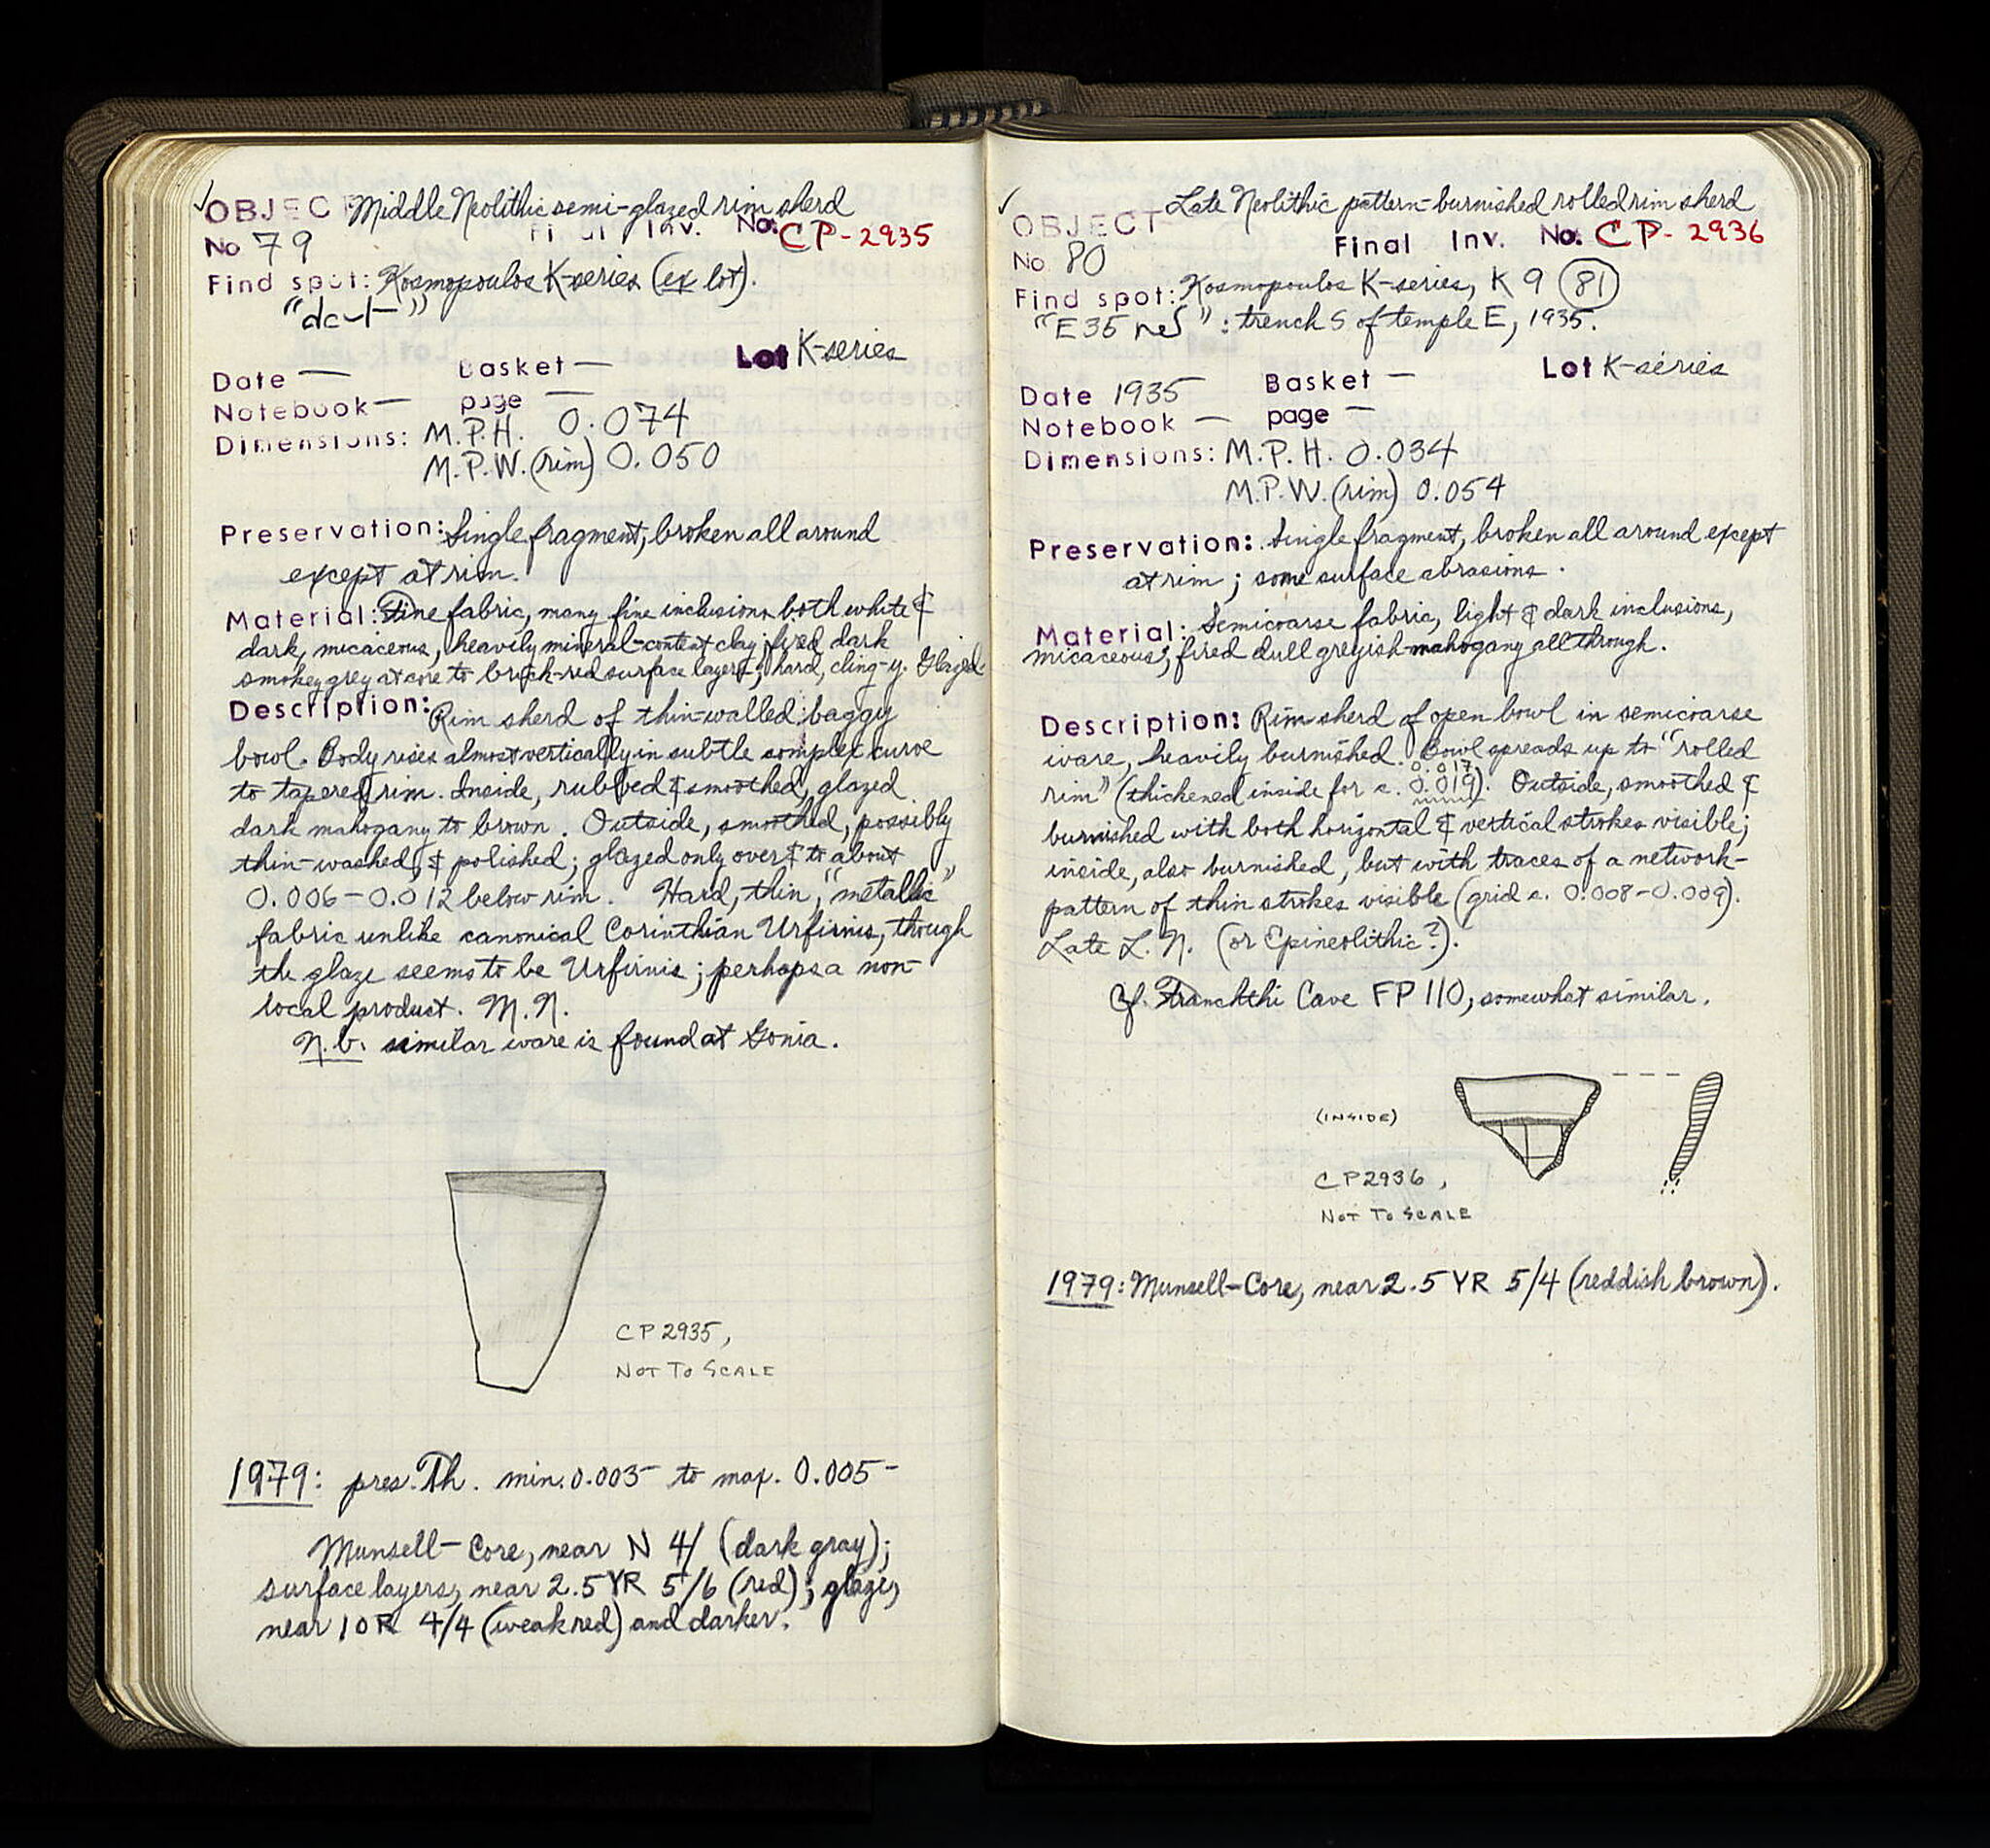 ✓ OBJECT Middle Neolithic semi-glazed rim sherd
No 79 Final Inv. No. CP-2935
Find spot: Kosmopoulos K-series (ex lot).
Lot K-series
Date — Basket —
Notebook — page —
Dimensions: M.P.H. 0.074
M.P.W. (rim) 0.050
Preservation: Single fragment, broken all around
except at rim.
Material: Fine fabric, many fine inclusions both white &
dark, micaceous, heavily mineral-content clay; fired dark
smokey grey at core to brick-red surface layers; hard, cling-y. Glazed.
Description: Rim sherd of thin-walled baggy
bowl. Body rises almost vertically in subtle complex curve
to tapered rim. Inside, rubbed & smoothed, glazed
dark mahogany to brown. Outside, smoothed, possibly
thin-washed, & polished; glazed only over & to about
0.006-0.012 below rim. Hard, thin, "metallic"
fabric unlike canonical Corinthian Urfirnis, though
the glaze seems to be Urfirnis; perhaps a non-
local product. M.N.
N.b. similar ware is found at Gonia.
CP2935,
NOT TO SCALE
1979: pres. Th. min. 0.003- to max. 0.005-
Munsell-Core, near N 4/ (dark gray);
surface layers, near 2.5YR 5/6 (red); glaze,
near 10R 4/4 (weak red) and darker.
✓ OBJECT Late Neolithic pattern-burnished rolled rim sherd
No. 80 Final Inv. No. CP-2936
Find spot: Kosmopoulos K-series, K 9 (81)
: trench S of temple E, 1935.
Lot K-series
Date 1935 Basket —
Notebook — page —
Dimensions: M.P.H. 0.034
M.P.W. (rim) 0.054
Preservation: Single fragment, broken all around except
at rim; some surface abrasions.
Material: Semicoarse fabric, light & dark inclusions,
micaceous; fired dull greyish-mahogany all through.
Description: Rim sherd of open bowl in semicoarse
ware, heavily burnished. Bowl spreads up to "rolled
0.017
rim" (thickened inside for c. 0.019). Outside, smoothed &
burnished with both horizontal & vertical strokes visible;
inside, also burnished, but with traces of a network-
pattern of thin strokes visible (grid c. 0.008-0.009).
Late L.N. (or Epineolithic?).
Cf. Franchthi Cave FP 110, somewhat similar.
(INSIDE)
CP2936,
NOT TO SCALE
1979: Munsell-Core, near 2.5 YR 5/4 (reddish brown).